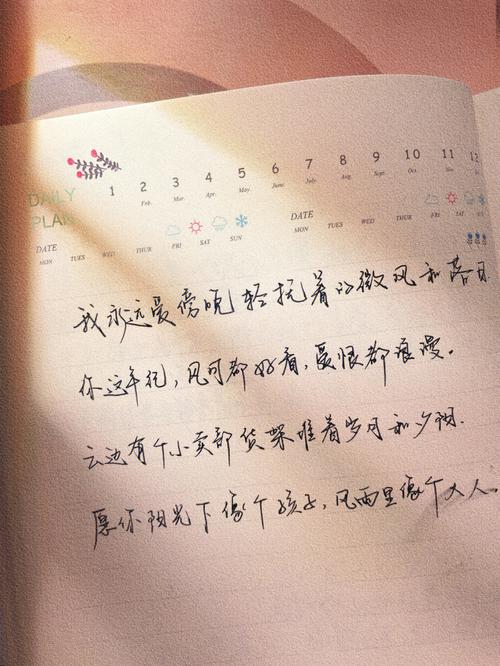 DAILY PLAN
1 2 3 4 5 6 7 8 9 10 11 12
Feb. Mar. Apr. May. June. July. Aug. Sep. Oct. Nov.
DATE DATE
MON TUES WED THUR FRI SAT SUN MON TUES WED THUR FRI SAT
我永远爱傍晚轻抚着的微风和落日
你这年纪,风可都好看,爱恨都浪漫。
云边有个小卖部货架堆着岁月和夕阳.
愿你阳光下像个孩子,风雨里像个大人。